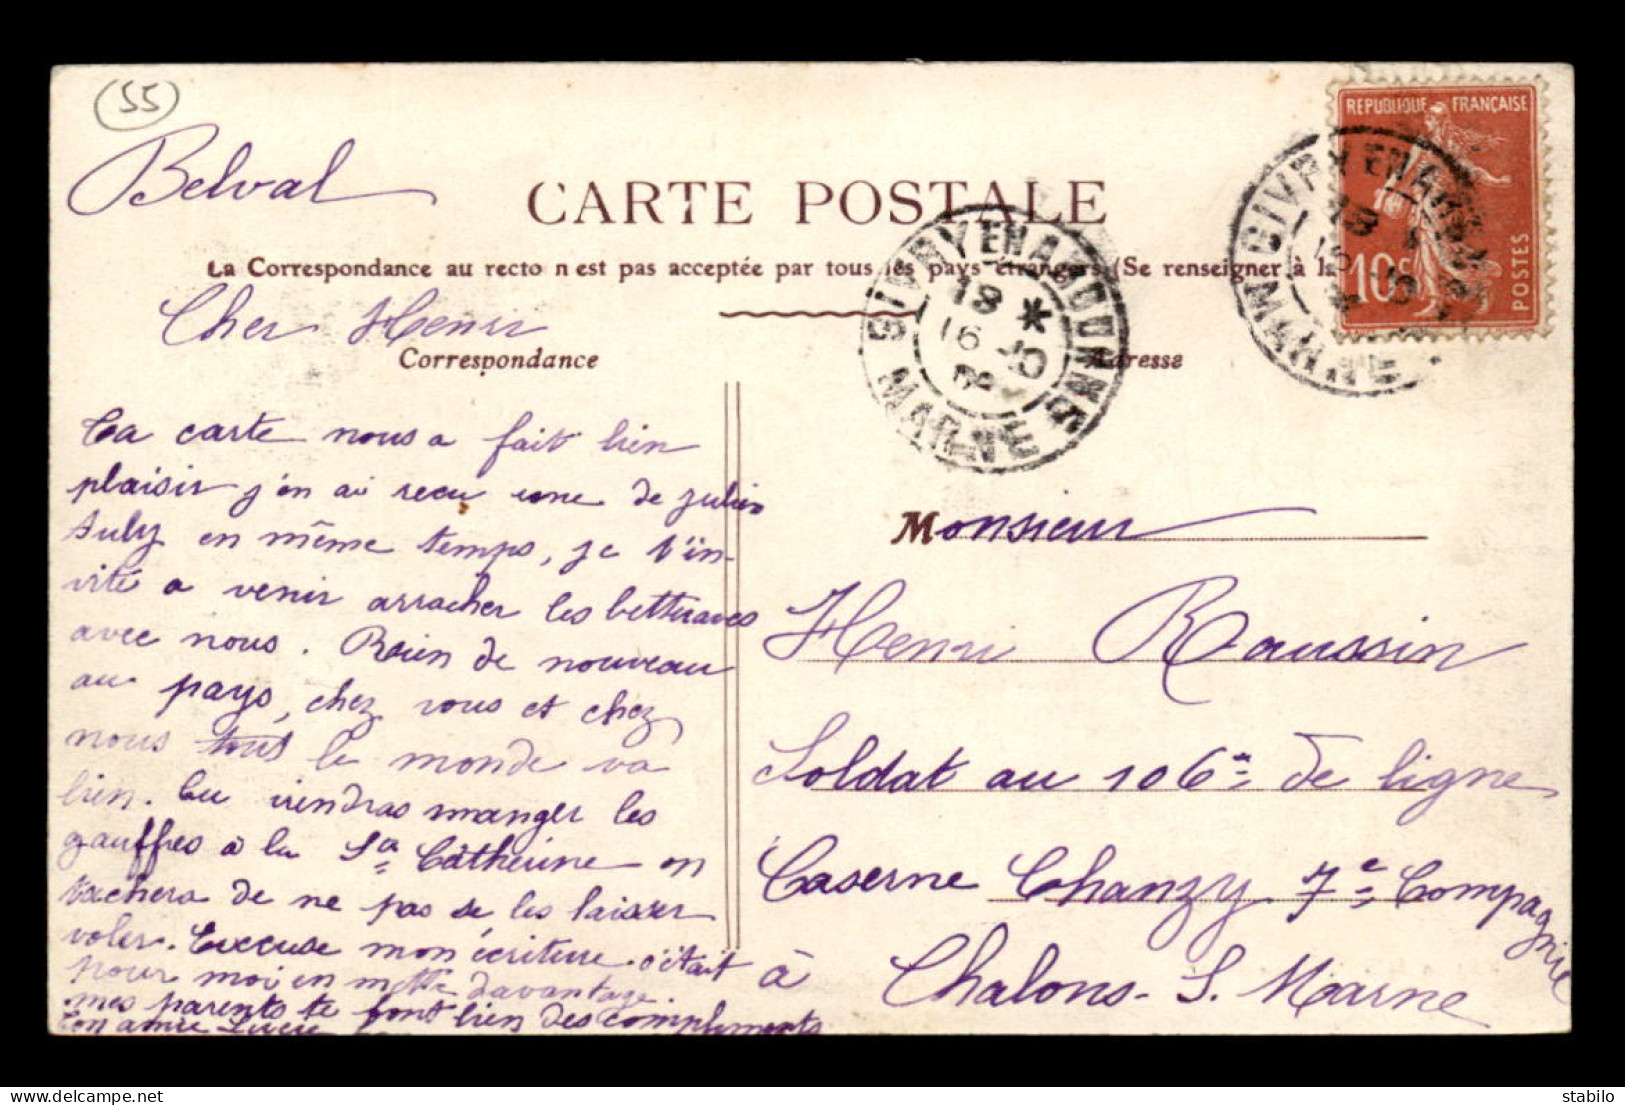 (55)
Belval
CARTE POSTALE
La Correspondance au recto n'est pas acceptée par tous les pays étrangers (Se renseigner à la
Cher Henri
Correspondance
Ta carte nous a fait bien
plaisir j'en ai recu une de julien
July en même temps, je t'in-
vite a venir arracher les betteraves
avec nous. Rien de nouveau
au pays, chez vous et chez
nous tout le monde va
bien. Tu viendras manger les
gauffres à la Ste Cathérine on
tachera de ne pas se les laisser
voler. Excuse mon écriture c'était
pour moi en mettre davantage.
mes parents te font bien des compliments
Ton amie Lucie
Adresse
Monsieur
Henri Roussin
Soldat au 106e de ligne
Caserne Chanzy 7e Compagnie
à Chalons-S. Marne
REPUBLIQUE FRANÇAISE
10c
POSTES
GIVRY EN ARGONNE
18 *
16 10
08
MARNE
GIVRY EN ARGONNE
18
16 10
MARNE
delcampe.net
sofalbo